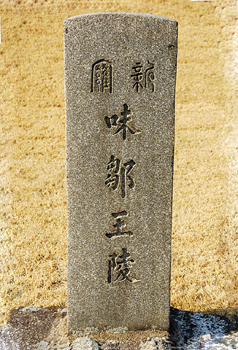 新羅
味鄒王陵